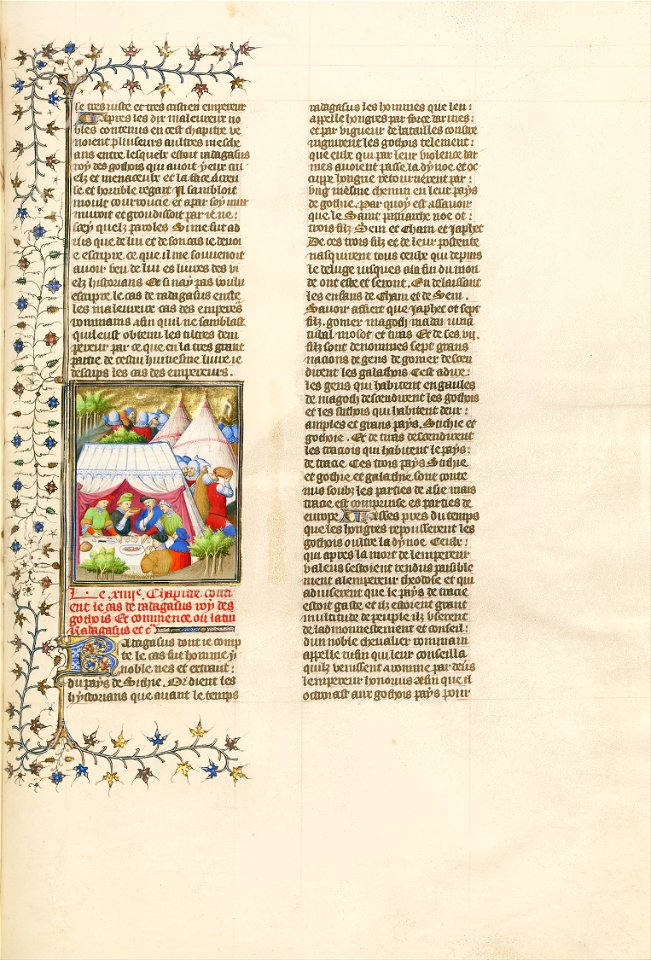 se tres iuste et tres casti en empereur
Apres les dix maleureux no
bles contenus en cest chapitre ve
noient plusieurs aultres mesche
ans entre lesquelz estoit radagasus
roy des gothois qui avoit yeux cru
elz et menaceux et la face dceu
se et horrible regart Il sambloit
moult courroucie et a par soy mur
muroit et grondissoit par ie ne
scey quelz paroles Si me fut ad
uis que de lui et de son cas ie devoi
e escripre. ce que il me souvenoit
avoir leu de lui es liures des vi
elz historians Et si nay pas voulu
escripre le cas de radagasus entre
les maleureux cas des emperes
rommains afin quil ne samblast
quil eust obtenu les tiltres dem
pereur par ce que en la tres grant
partie de cestui huitiesme liure ie
descrips les cas des empereurs.
Le .xiiii.e Chapitre conti
ent le cas de radagasus roy des
gothois Et commence ou latin
Radagasus et c
Radagasus dont ie comp
te le cas fut homme
noble nes et extrait
du pays de Sichie. Or dient les
hystorians que avant le temps
radagasus les hommes que len
appelle hongres par force darmes
et par vigueur de batailles constrai
rent les gothois telement
que ceulx qui par leur violence dar
mes avoient passe la dynoe. et oc
cupe hongrie retournerent par
ung mesme chemin en leur pays
de gothie. Par quoy est assavoir
que le Saint patriarche noe ot
trois filz Sem et Cham et Japhet
De ces trois filz et de leur posterite
nasquirent tous ceulx qui depuis
le deluge iusques a la fin du mon
de ont este et seront. En delaissant
les enfans de Cham et de Sem.
Savoir affiert que Japhet ot sept
filz. gomer magoch madai iuna
tubal mosot et tiras Et de ses .vii.
filz sont denommes sept grans
nacions de gens de gomer descen
dirent les galathois Cest adire
les gens qui habitent en gaules
de magoch descendirent les gothois
et les sithois qui habitent deux
amples et grans pays. Sithie et
gothie. Et de tiras descendirent
les tracois qui habitent le pays
de trace. Ces trois pays Sithie
et gothie et galathie sont conte
nus soubz les parties de asie mais
trace est comprinse es parties de
europe Asses pres du temps
que les hongres repousserent les
gothois oultre la dynoe. Ceulx
qui apres la mort de lempereur
valens sestoient rendus paisible
ment a lempereur theodose et qui
adviserent que le pays de tracie
estoit gaste et ilz estoient grant
multitude de peuple ilz userent
de ladmonnestement et conseil
dun noble chevalier rommain
appelle rufin qui leur conseilla
quilz venissent a romme par deuers
lempereur honorius afin que il
octroiast aux gothois pays pour